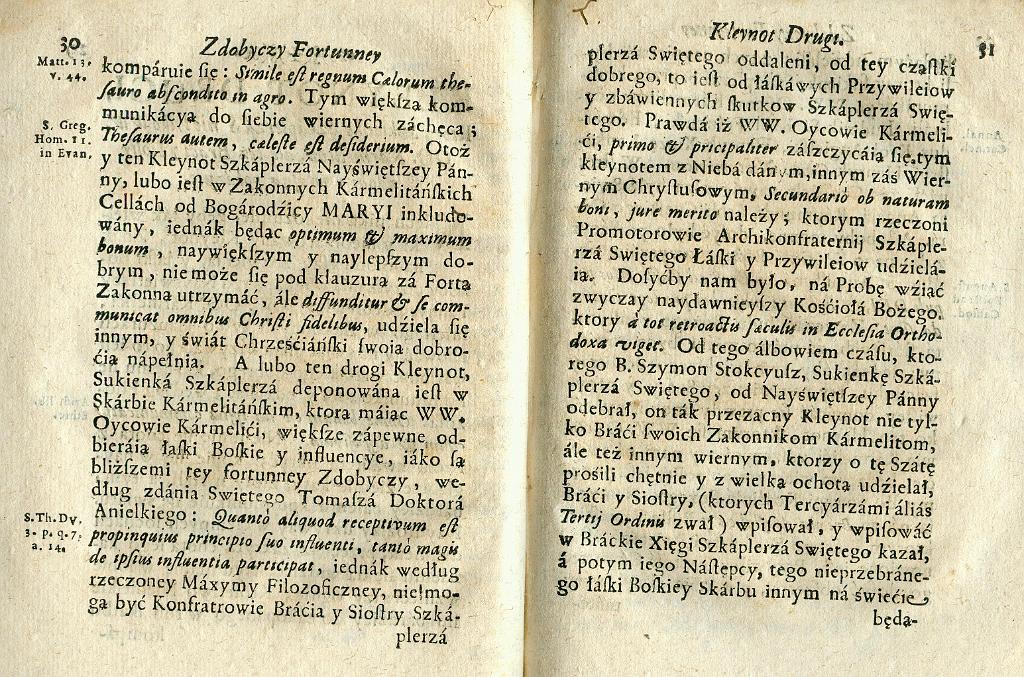 30
Zdobyczy Fortunney
Matt. 13.
v. 44.
kompáruie ſię: Simile eſt regnum Cælorum the-
ſauro abſcondito in agro. Tym większa kom-
munikácya do ſiebie wiernych záchęca;
S. Greg.
Hom. 11.
in Evan.
Theſaurus autem, cæleſte eſt deſiderium. Otoż
y ten Kleynot Szkáplerzá Nayświętſzey Pán-
ny, lubo ieſt w Zakonnych Kármelitáńſkich
Cellách od Bogárodźicy MARYI inkludo-
wány, iednák będąc optimum & maximum
bonum, naywiększym y naylepſzym do-
brym, niemoże ſię pod klauzura zá Forta
Zakonna utrzymáć, ále diffunditur & ſe com-
municat omnibus Chriſti fidelibus, udziela ſię
innym, y świát Chrześćiáńſki ſwoia dobro-
ćia nápełnia. A lubo ten drogi Kleynot,
Sukienká Szkáplerzá deponowána ieſt w
Skárbie Kármelitáńſkim, ktora máiąc WW.
Oycowie Kármelići, większe zápewne od-
bieráia łaſki Boſkie y influencye, iáko ſa
bliższemi tey fortunney Zdobyczy, we-
dług zdánia Swiętego Tomaſzá Doktorá
S. Th. Dv.
3. p. q. 7.
a. 14.
Anielkiego: Quantò aliquod receptivum eſt
propinquius principio ſuo influenti, tantò magis
de ipſius influentia participat, iednák według
rzeczoney Máxymy Filozoficzney, nie!mo-
ga być Konfratrowie Bráćia y Sioſtry Szká-
plerzá
Kleynot Drugi.
31
plerzá Swiętego oddaleni, od tey cząſtki
dobrego, to ieſt od łáſkáwych Przywileiow
y zbáwiennych ſkutkow Szkáplerzá Swię-
tego. Prawdá iż WW. Oycowie Kármeli-
ći, primo & pricipaliter zászczycáia ſię,tym
kleynotem z Niebá dánym,innym záś Wier-
nym Chryſtuſowym, Secundariò ob naturam
boni, jure merito należy; ktorym rzeczoni
Promotorowie Archikonfraternij Szkáple-
rzá Swiętego Łáſki y Przywileiow udzielá-
ia. Doſyćby nam było, ná Probę wźiąć
zwyczay naydawnieyſzy Kośćiołá Bożego,
ktory à tot retroactis ſæculis in Eccleſia Ortho-
doxa viget. Od tego álbowiem czáſu, kto-
rego B. Szymon Stokcyuſz, Sukienkę Szká-
plerzá Swiętego, od Nayświętſzey Pánny
odebrał, on ták przezacny Kleynot nie tyl-
ko Bráći ſwoich Zakonnikom Kármelitom,
ále też innym wiernym, ktorzy o tę Szátę
prośili chętnie y z wielka ochotą udzielał,
Bráći y Sioſtry, (ktorych Tercyárzámi áliás
Tertij Ordinis zwał) wpiſował, y wpiſowáć
w Bráckie Xięgi Szkáplerzá Swiętego kazał,
á potym iego Náſtępcy, tego nieprzebráne-
go łáſki Boſkiey Skárbu innym ná świećie
będa-